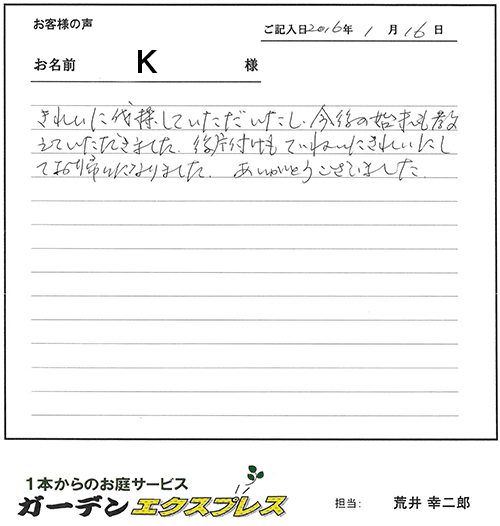 お客様の声
ご記入日2016年 1月16日
お名前 K 様
きれいに伐採していただいたし、今後の始末も教
えていただきました。後片付けもていねいにきれいにし
てお帰りになりました。ありがとうございました。
1本からのお庭サービス
ガーデンエクスプレス
担当: 荒井 幸二郎